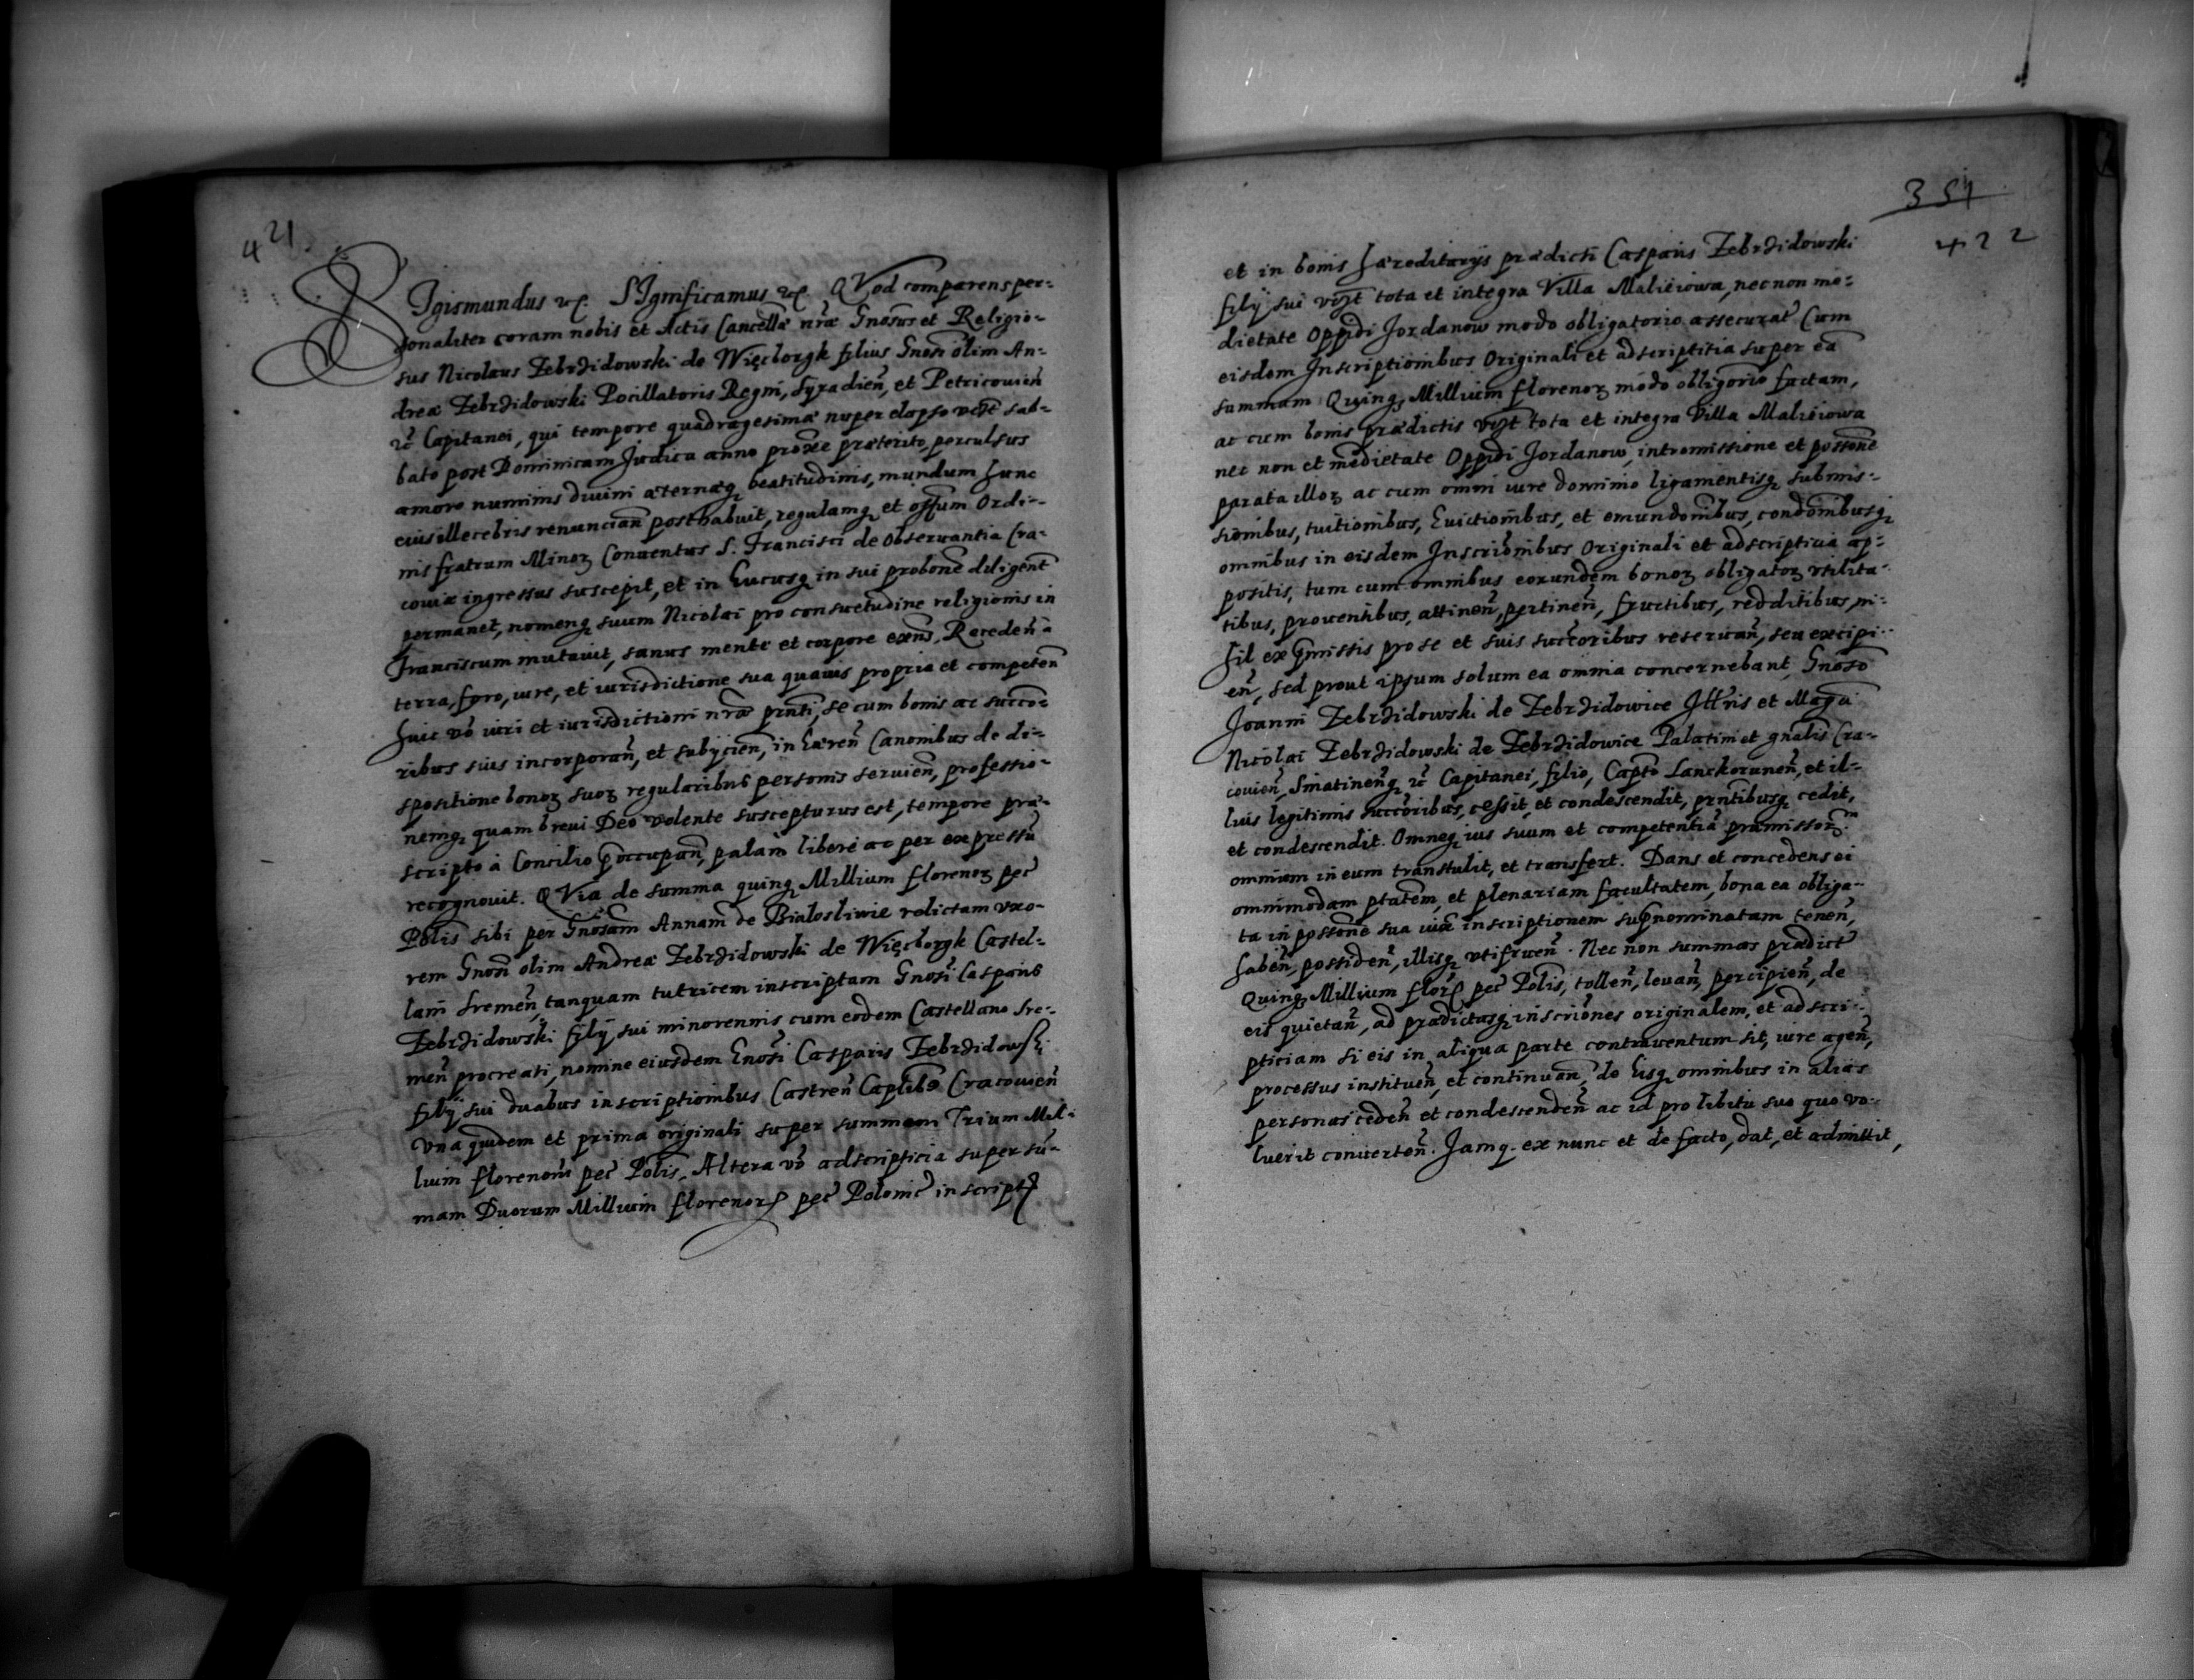 421
SIgismundus etc. SIgnificamus etc. QVod comparens per-
sonaliter coram nobis et Actis Cancellæ nræ Gnosus et Religio-
sus Nicolaus Zebrzidowski de Więcborgk filius Gnosi olim An-
dreæ Zebrzidowski Pocillatoris Regni, Syradień, et Petricouień
etc Capitanei, qui tempore quadragesimæ nuper elapso vizt sab-
bato post Dominicam Judica anno proxe præterito, perculsus
amore numinis diuini æternæq beatitudinis, mundum hunc
eius illecebris renuncian posthabuit, regulamq et offum Ordi-
nis fratrum Minoz Conuentus S. Francisci de Obseruantia Cra-
couiæ ingressus suscepit, et in hucusq in sui probone diligent
permanet, nomenq suum Nicolai pro consuetudine religionis in
Franciscum mutauit, sanus mente et corpore exens, Receden a
terra, foro, iure, et iurisdictione sua quauis propria et competen
huic vo iuri et iurisdictioni nræ prnti, se cum bonis ac succo-
ribus suis incorporan, et subijcien, in hæren Canonibus de di-
spositione bonoz suoz regularibus personis seruien, professio-
nemq quam breui Deo volente suscepturus est, tempore præ-
scripto à Concilio poccupan, palam libere ac per expressu
recognouit. QVia de summa quinq Millium florenoz pec
Polis sibi per Gnosam Annam de Bialosliwie relictam vxo-
rem Gnosi olim Andreæ Zebrzidowski de Więcborgk Castel-
lani Sremen, tanquam tutricem inscriptam Gnosi Casparis
Zebrzidowski filij sui minorennis cum eodem Castellano Sre-
men procreati, nomine eiusdem Gnosi Casparis Zebrzidowski
filij sui duabus inscriptionibus Castren Caplibs Cracouien
Vna quidem et prima originali super summam Trium Mil-
lium florenoru pec Polis. Altera vo adscripticia super su-
mam Duorum Millium florenorz pec Polonic inscript
351
422
et in bonis hæreditarijs prædicti Casparis Zebrzidowski
filij sui vizt tota et integra Villa Maliciowa, nec non me-
dietate Oppidi Jordanow modo obligatorio assecurat Cum
eisdem Inscriptionibus Originali et adscriptitia super ea
summam Quinq Millium florenoz modo obligorio factam,
ac cum bonis prædictis vizt tota et integra Villa Maliciowa
nec non et medietate Oppidi Jordanow, intromissione et possone
parata illoz ac cum omni iure dominio ligamentisq submis-
sionibus, tuitionibus, Euictionibus, et emundonibus, condonibusq
omnibus in eisdem Inscrionibus Originali et adscriptitia ap-
positis, tum cum omnibus eorundem bonoz obligatoz vtilita-
tibus, prouentibus, attinen, pertinen, fructibus, redditibus, ni-
hil ex pmissis pro se et suis succoribus reseruan, seu excipi-
en, sed prout ipsum solum ea omnia concernebant, Gnoso
Joanni Zebrzidowski de Zebrzidowice Illris et Magci
Nicolai Zebrzidowski de Zebrzidowice Palatini et gnalis Cra-
couien, Sniatinenq etc Capitanei, filio, Capto Lanckorunen, et il-
lius legitimis succoribus, cessit, et condescendit, prntibusq cedit,
et condescendit. Omneq ius suum et competentia præmissorm
omnium in eum transtulit, et transfert. Dans et concedens ei
omnimodam ptatem, et plenariam facultatem, bona ea obliga-
ta in possone sua iuxta inscriptionem supnominatam tenen,
haben, possiden, illisq vtifruen. Nec non summas prædict
Quinq Millium florz pec Polis, tollen, leuan, percipien, de
eis quietan, ad prædictasq inscriones originalem, et adscri-
pticiam si eis in aliqua parte contrauentum sit, iure agen,
processus instituen, et continuan, de hisq omnibus in alias
personas ceden et condescenden ac id pro libitu suo quo vo-
luerit conuerten. Jamq. ex nunc et de facto, dat, et admittit,